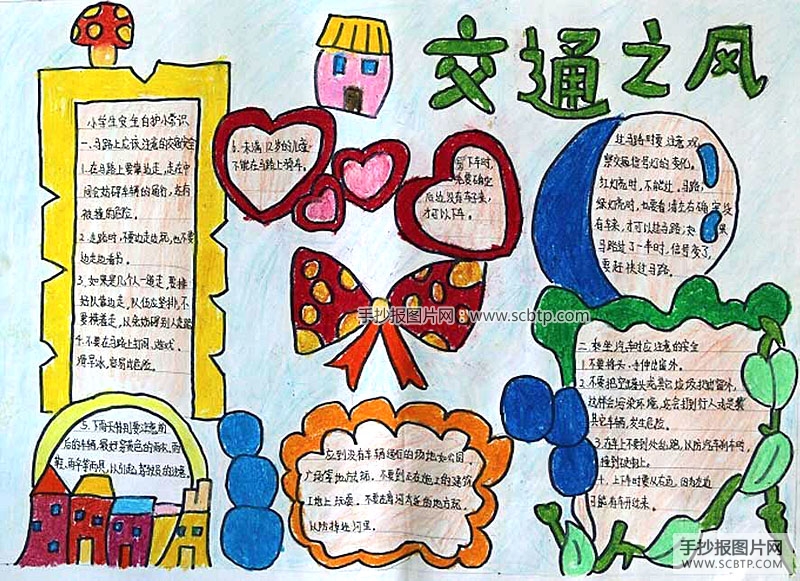 交通之风
小学生安全自护小常识
一、马路上应该注意的交通安全
1.在马路上要靠边走,走在中
间会妨碍车辆的通行,还有
被撞的危险。
2.走路时,不要边走边玩,也不要
边走边看书。
3.如果是几个人一道走,要排
站队靠边走,以伍应竖排,不
要横着走,以免妨碍别人走路
4.不要在马路上打闹、游戏、
滑旱冰,容易出危险。
5.下雨天特别要注意前
后的车辆,最好穿黄色的雨衣,雨
鞋,雨伞等雨具,以引起驾驶员的注意。
6.未满12岁的儿童
不能在马路上骑车。
下车时,
先要确定
后边没有车子来,
才可以下车。
过马路时要注意观
察交通信号灯的变化。
红灯亮时,不能过马路,
绿灯亮时,也要看清左右确实没
有车来,才可以过马路,如果
马路过了一半时,信号变了,
要赶快过马路。
手抄报图片网:www.scbtp.com
应到没有车辆通行的场地如公园、
广场等地游玩,不要到正在施工的建筑
工地上玩耍,不要在靠河太近的地方玩,
以防掉进河里。
二、乘坐汽车时应注意的安全
1.不要将头、手伸出窗外。
2.不要把空罐头壳等它垃圾扔出窗外,
这样会污染环境,或会打到行人或是
其它车辆,发生危险。
3.在车上不要到处乱跑,以防汽车刹车时,
撞到硬物上。
4.上下车时要从右边,因为左边
可能有车开过来。
手抄报图片网
WWW.SCBTP.COM